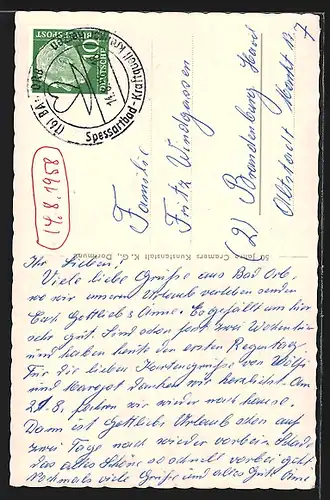 DEUTSCHE BUNDESPOST
10
(16) BAD ORB
Spessartbad - Kraftquell
14.8.1958
Familie
Fritz Windgassen
(2) Brandenburg Havel
Altstadt Markt 7
50 Jahre Cramers Kunstanstalt K.G., Dortmund
Ihr Lieben!
Viele liebe Grüße aus Bad Orb,
wo wir unseren Urlaub verleben senden
Euch Gottlieb & Anne. Es gefällt uns hier
sehr gut. Sind schon fast zwei Wochen hier
und haben heute den ersten Regentag.
Für die lieben Kartengrüße von Wölfi
und Margot danken wir herzlichst. Am
21.8. fahren wir wieder nach Hause.
Dann ist Gottliebs Urlaub schon auf
zwei Tage nach wieder vorbei. Schade
das alles Schöne so schnell vorbei geht
Nochmals viele Grüße und alles Gute Anne